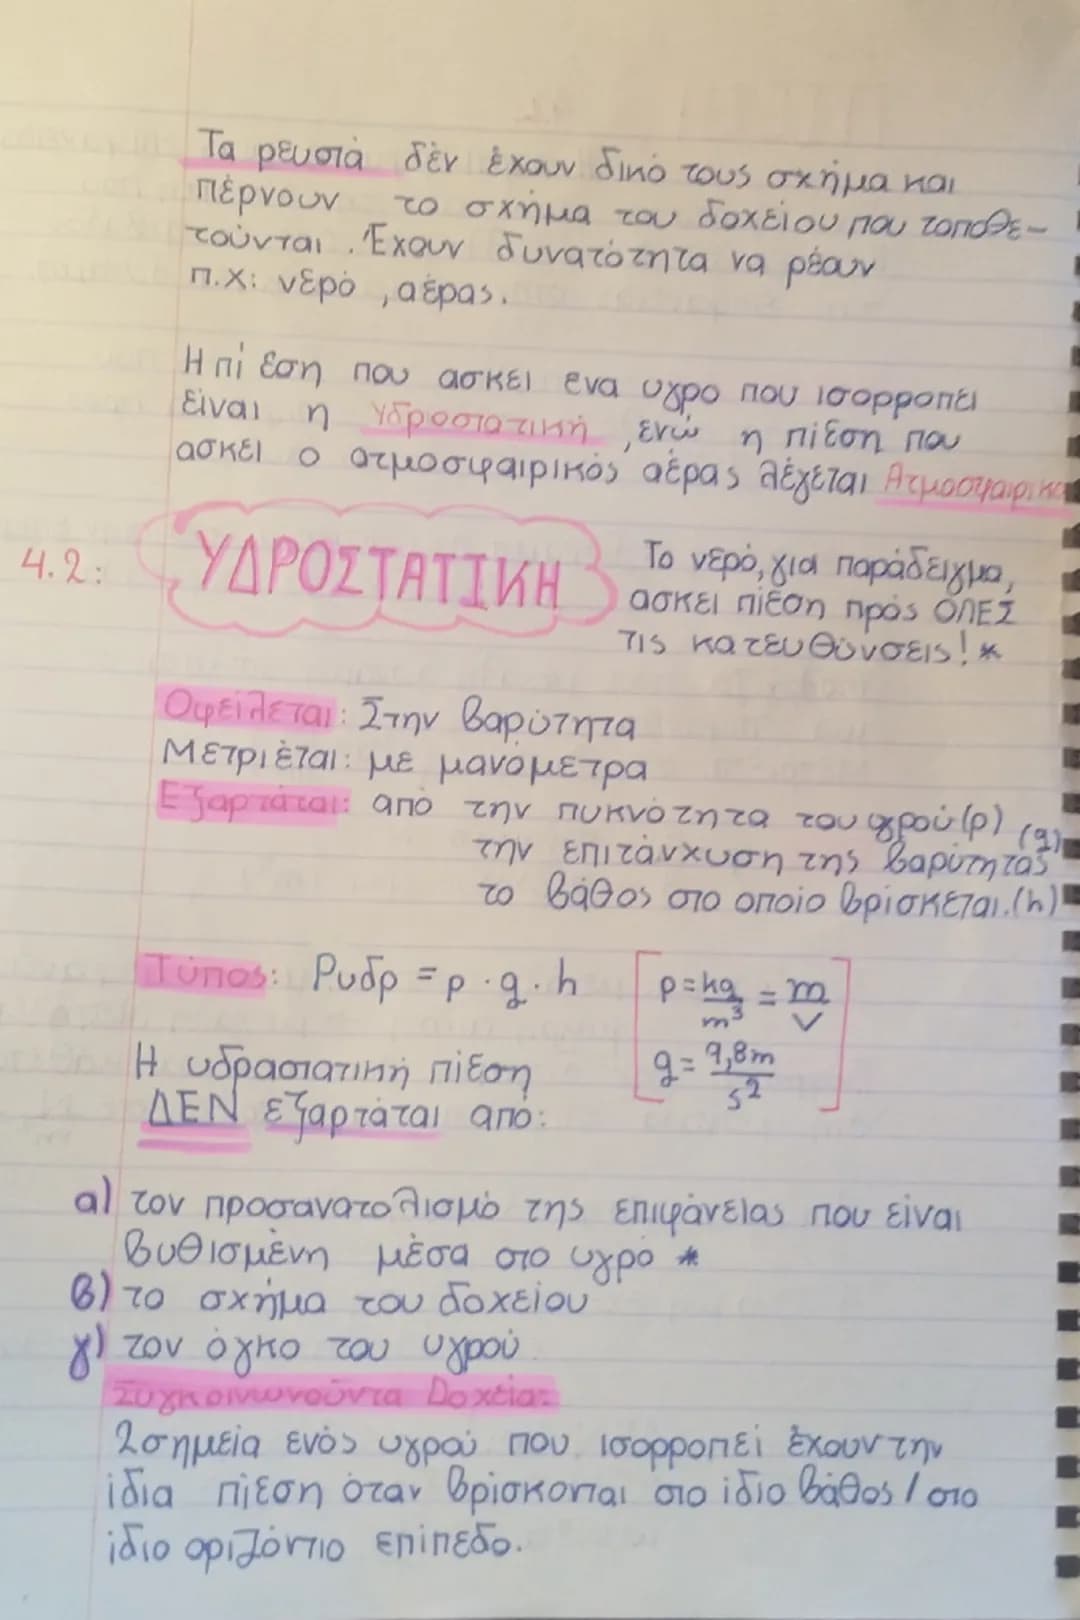 Τα ρευστά δέν έχουν δικό τους σχήμα και
πέρνουν το σχήμα του δοχείου που τοποθε-
τούνται. Έχουν δυνατότητα να ρέουν
π.χ: νερό, αέρας.
Η πίεση που ασκεί ενα υγρο που ισορροπεί
είναι η Υδροστατική, ενώ η πίεση που
ασκεί ο ατμοσφαιρικός αέρας λέγεται Ατμοσφαιρικά
4.2: ΥΔΡΟΣΤΑΤΙΚΗ
Το νερό, για παράδειγμα,
ασκεί πίεση πρός ΟΛΕΣ
τις κατευθύνσεις! *
Οφείλεται: Στην βαρύτητα
Μετριέται: με μανόμετρα
Εξαρτάται: από την πυκνότητα του υγρού (ρ)
την επιτάνχυση της βαρύτητας (g)
το βάθος στο οποίο βρίσκεται. (h)
Τύπος: Ρυδρ = ρ · g · h
[ρ = kg/m³ = m/V
g = 9,8m/s²]
Η υδραστατική πίεση
ΔΕΝ εξαρτάται από:
α) τον προσανατολισμό της επιφάνειας που είναι
βυθισμένη μέσα στο υγρό *
β) το σχήμα του δοχείου
γ) τον όγκο του υγρού
Συγκοινωνούντα Δοχεία:
2 σημεία ενός υγρού που ισορροπεί έχουν την
ίδια πίεση όταν βρίσκονται στο ίδιο βάθος / στο
ίδιο οριζόντιο επίπεδο.